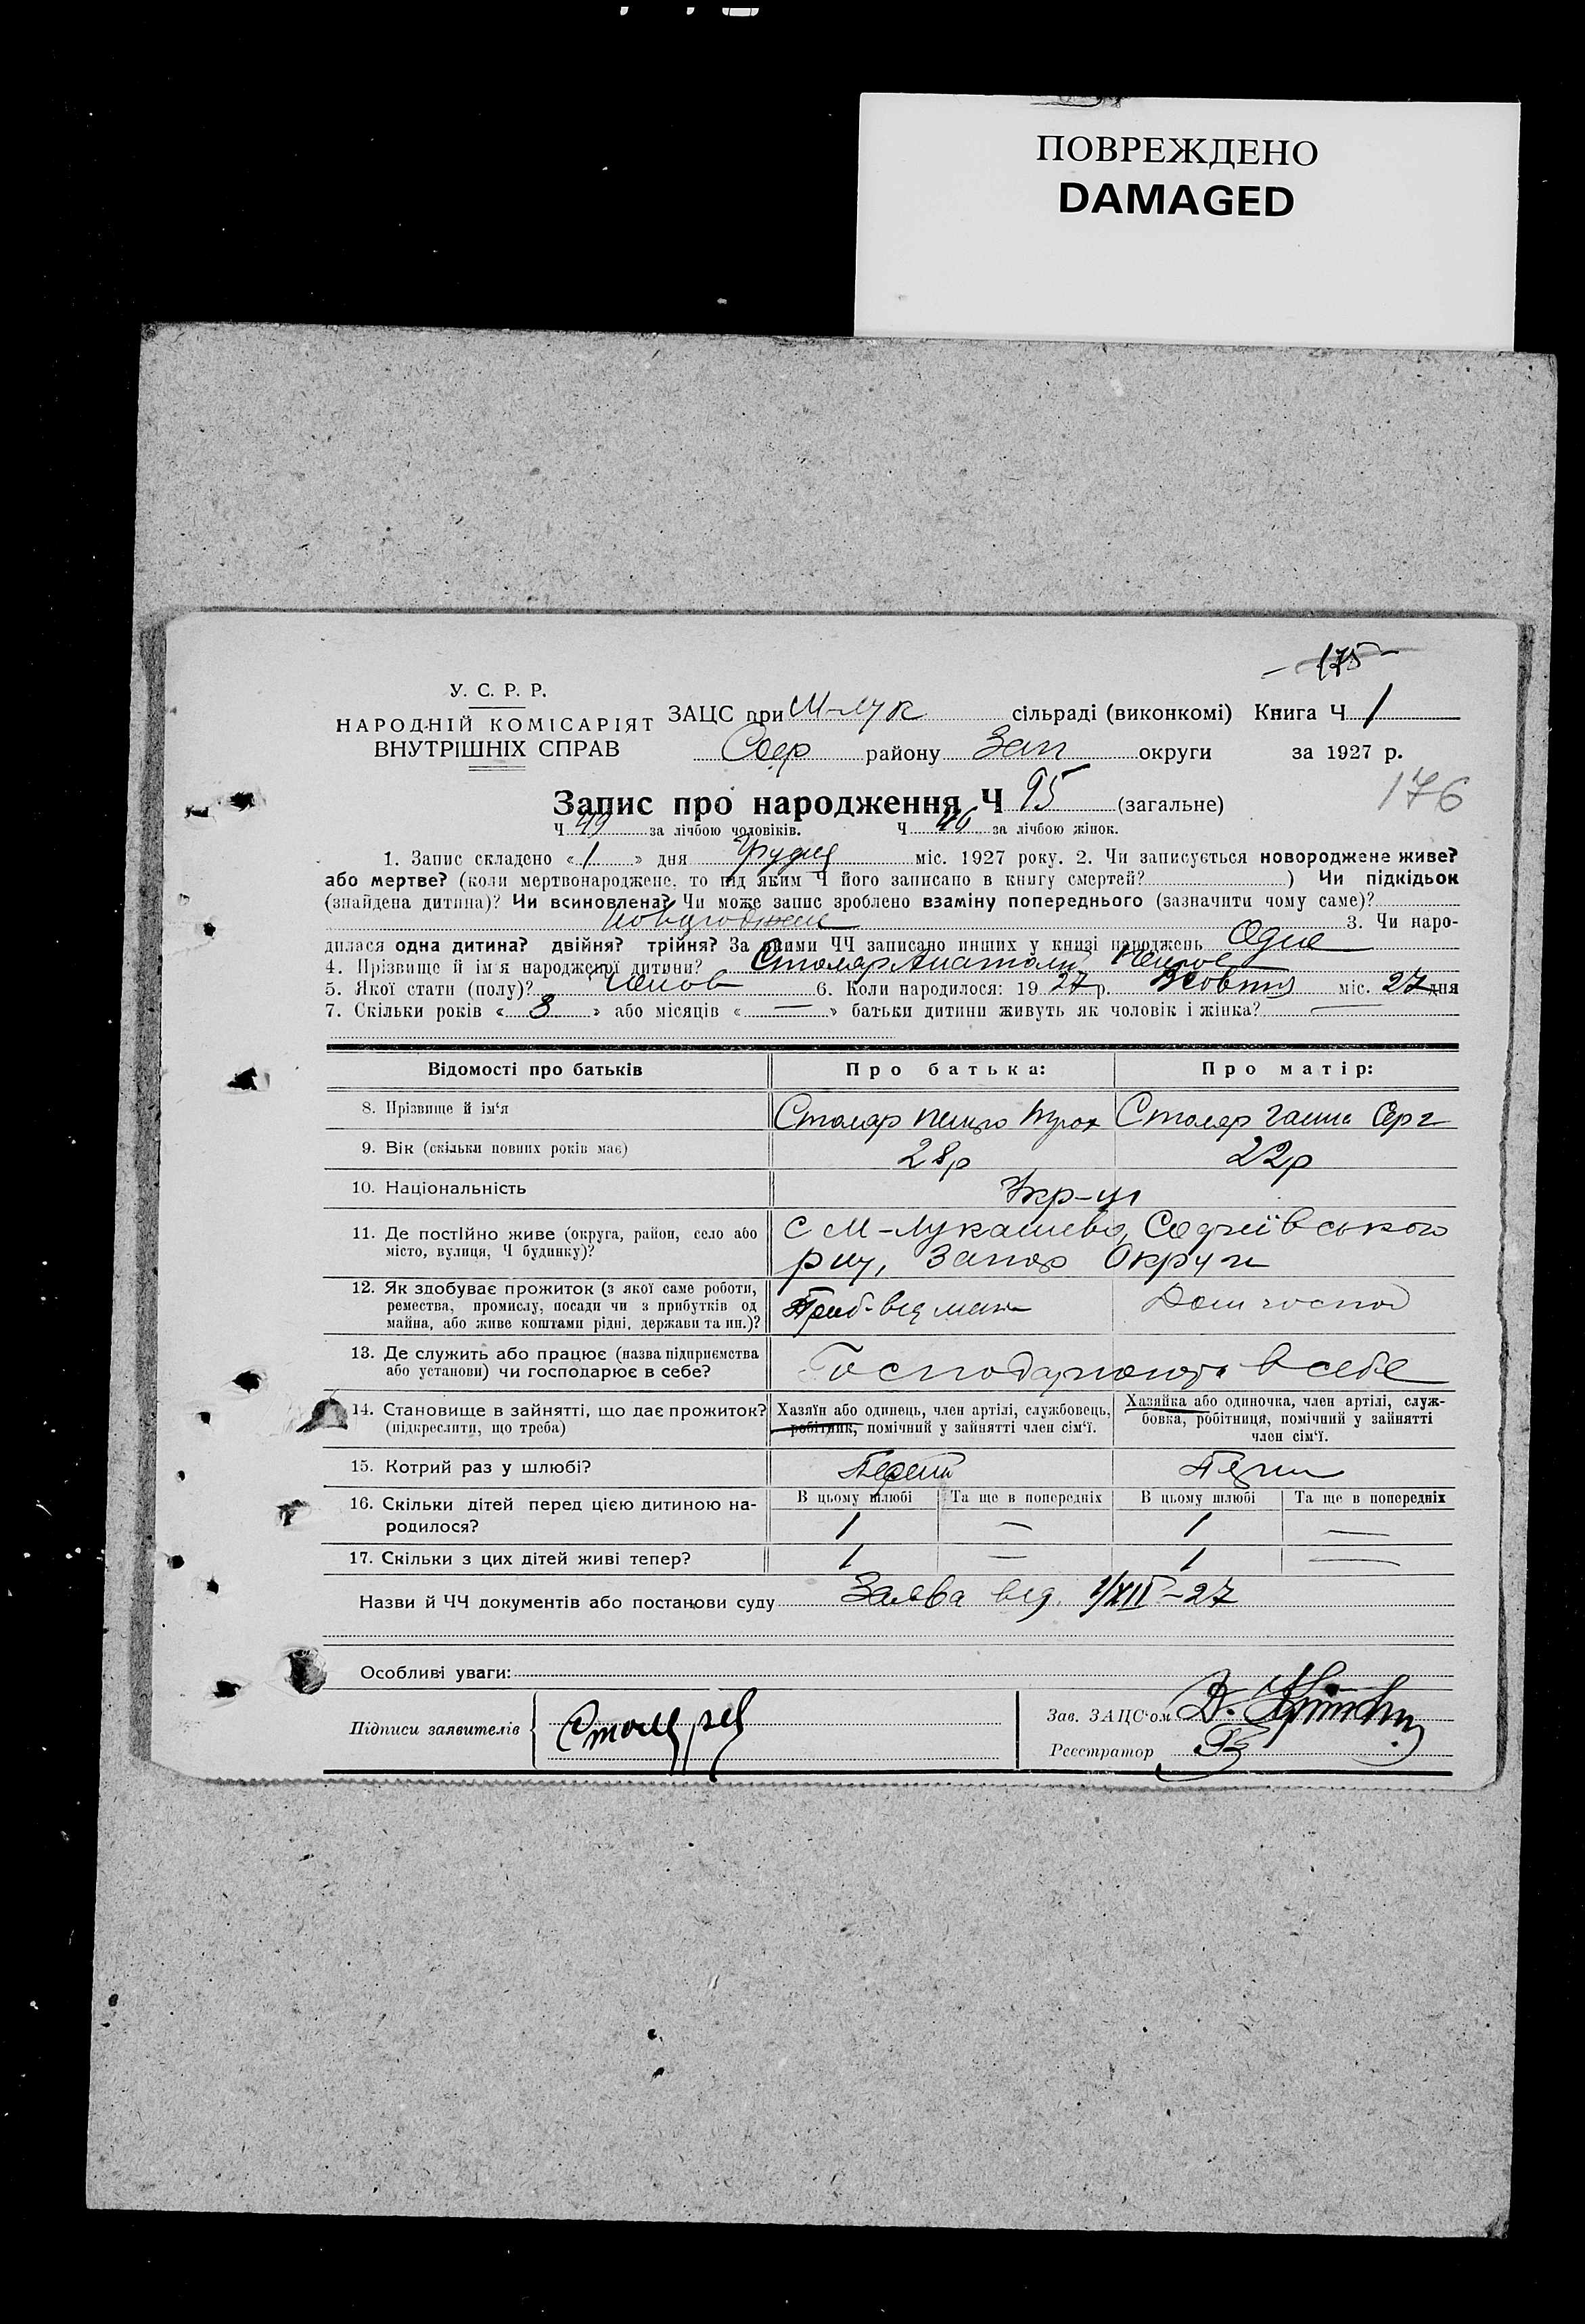 ПОВРЕЖДЕНО
DAMAGED
175
У. С. Р. Р.
НАРОДНІЙ КОМІСАРІЯТ
ВНУТРІШНІХ СПРАВ
ЗАЦС при М-Лук сільраді (виконкомі) Книга Ч 1
району Зап округи за 1927 р.
176
Запис про народження Ч 95 (загальне)
Ч 49 за лічбою чоловіків. Ч 46 за лічбою жінок.
1. Запис складено « 1 » дня Грудня міс. 1927 року. 2. Чи записується новороджене живе?
або мертве? (коли мертвонароджене, то під яким Ч його записано в книгу смертей? ) Чи підкідьок
(знайдена дитина)? Чи всиновлена? Чи може запис зроблено взаміну попереднього (зазначити чому саме)?
3. Чи наро-
дилася одна дитина? двійня? трійня? За якими ЧЧ записано инших у книзі народжень Одна
4. Прізвище й ім'я народженої дитини? Столяр Анатолій
5. Якої стати (полу)? Чолов 6. Коли народилося: 1927 р. Жовтня міс. 27 дня
7. Скільки років « 3 » або місяців « — » батьки дитини живуть як чоловік і жінка? —
Відомості про батьків
Про батька:
Про матір:
8. Прізвище й ім'я
Столяр Трох
Столяр Ганна Серг
9. Вік (скільки повних років має)
28р
22р
10. Національність
Укр-ці
11. Де постійно живе (округа, район, село або
місто, вулиця, Ч будинку)?
с М-Лукашево, Софіївського
р-ну, Запор Округи
12. Як здобуває прожиток (з якої саме роботи,
ремества, промислу, посади чи з прибутків од
майна, або живе коштами рідні, держави та ин.)?
Приб-від майн
Дом господ
13. Де служить або працює (назва підприємства
або установи) чи господарює в себе?
Господарюють в себе
14. Становище в зайнятті, що дає прожиток?
(підкреслити, що треба)
Хазяїн або одинець, член артілі, службовець,
робітник, помічний у зайнятті член сім'ї.
Хазяйка або одиночка, член артілі, служ-
бовка, робітниця, помічний у зайнятті
член сім'ї.
15. Котрий раз у шлюбі?
Перший
Перши
16. Скільки дітей перед цією дитиною на-
родилося?
В цьому шлюбі
Та ще в попередніх
В цьому шлюбі
Та ще в попередніх
1 — 1 —
17. Скільки з цих дітей живі тепер?
1 — 1 —
Назви й ЧЧ документів або постанови суду Заява від 1/XII-27
Особливі уваги:
Підписи заявителів
Зав. ЗАЦС'ом
Реєстратор